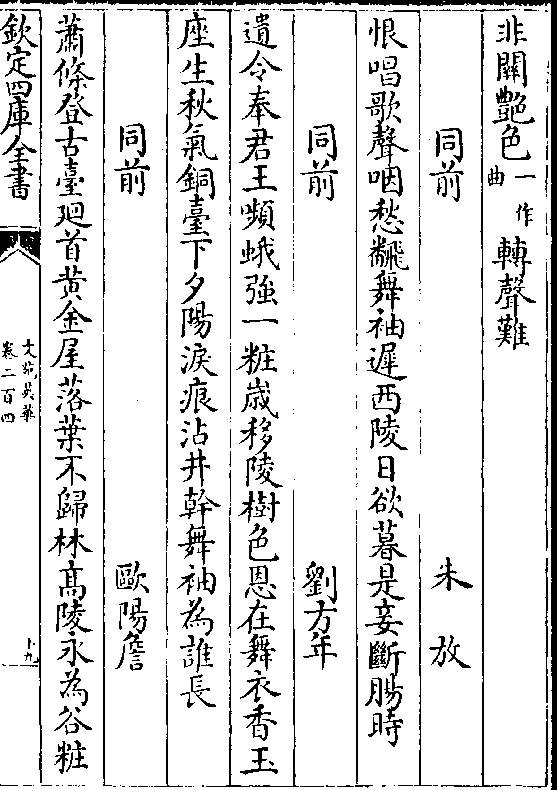 非關艶色一作曲轉聲難
同前 朱放
恨唱歌聲咽愁飜舞袖遲西陵日欲暮是妾斷腸時
同前 劉方年
遺令奉君王嚬蛾強一粧歳移陵樹色恩在舞衣香玉
座生秋氣銅臺下夕陽淚痕沾井幹舞袖為誰長
同前 歐陽詹
蕭條登古臺迴首黄金屋落葉不歸林髙陵永為谷粧
欽定四庫全書
文苑英華
卷二百四
十九